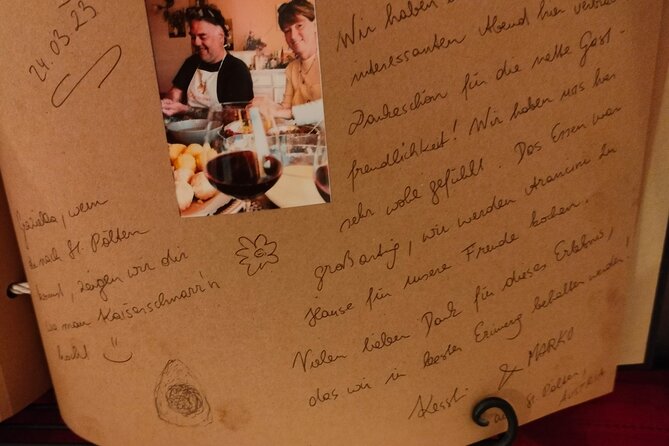 24.03.23
Wir haben
interessanten Abend hier verbra
Dankeschön für die nette Gast-
freundlichkeit! Wir haben uns hier
sehr wohl gefühlt. Das Essen war
großartig, wir werden Arancini zu
Hause für unsere Freunde kochen.
Vielen lieben Dank für dieses Erlebnis,
das wir in bester Erinnerung behalten werden!
& MARKO
St. Pölten,
AUSTRIA
, wenn
nach St. Pölten
kommt, zeigen wir dir
man Kaiserschmarr'n
kocht